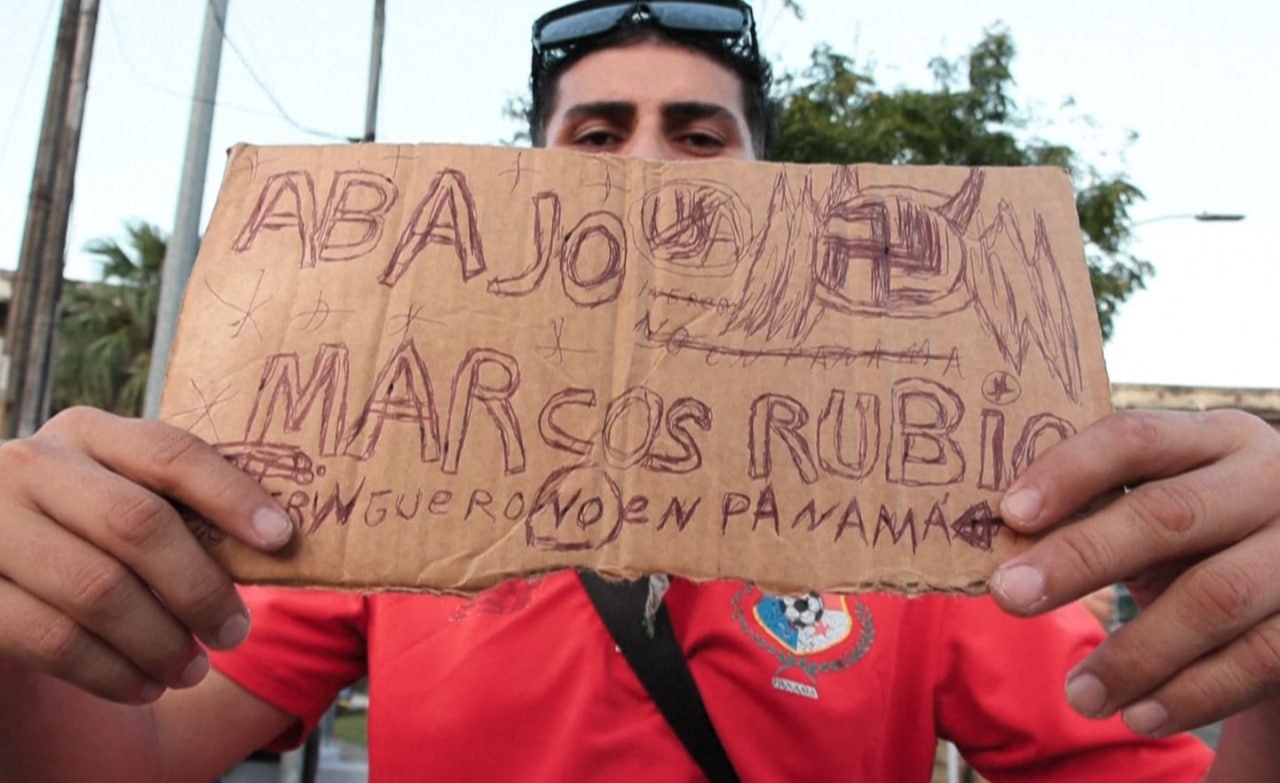 ABAJO USA
NO EN PANAMA
MARCOS RUBiO
RiNGUERO NO eN PANAMÁ
PANAMA